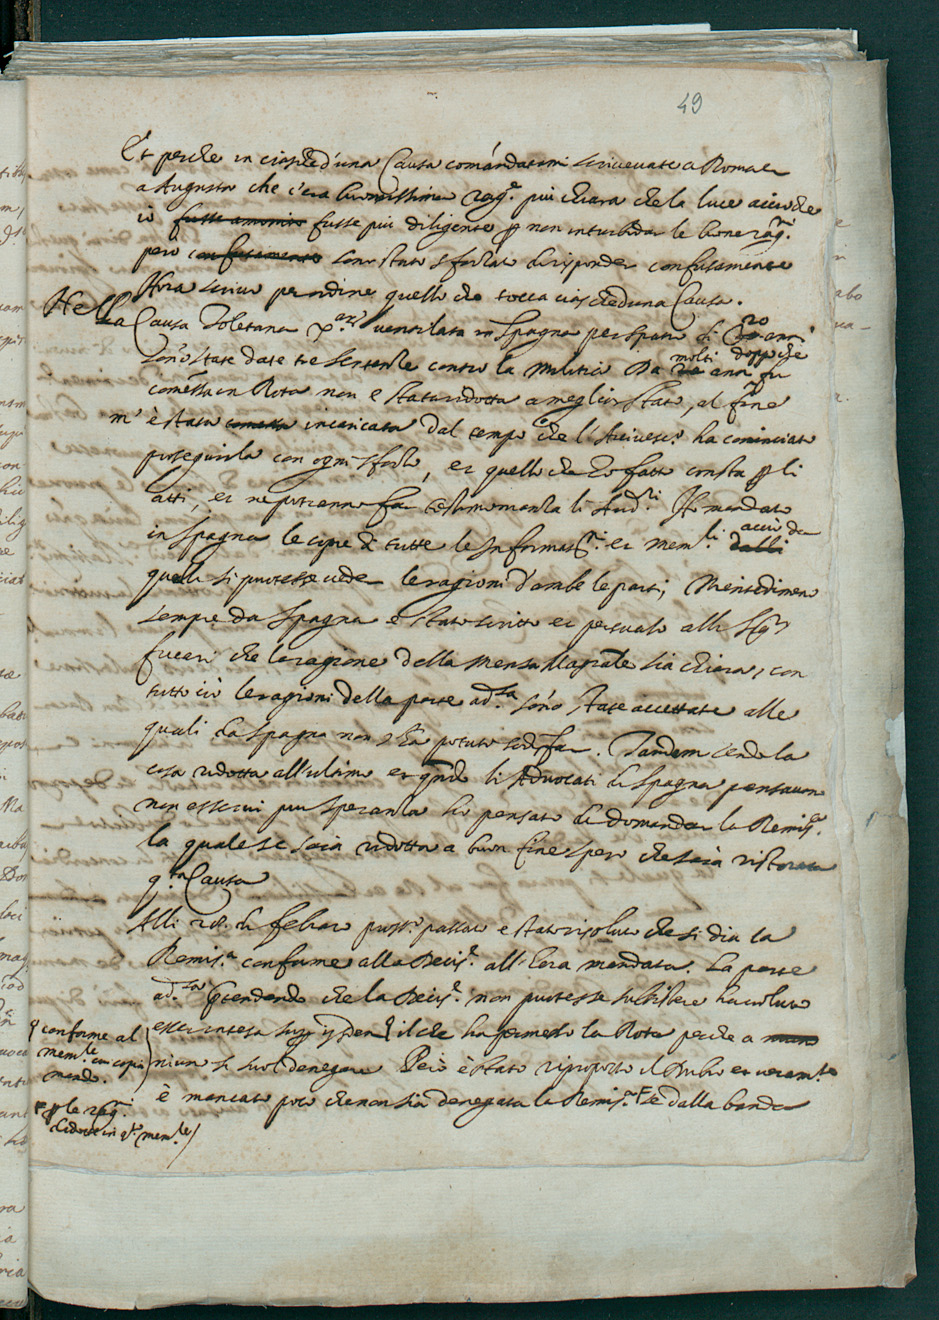 49
Et perche in ciascheduna Causa comandatami scrivevate a Roma et
a Augusta che c'era buonissima rag.e più chiara che la luce accioche
io fusse amonito fusse più diligente per non inturbidar le bone rag.ni
però confusamente sono stato sforzato di risponder confusamente
Hora scrivo per ordine quello che tocca ciascheduna Causa.
Nella Causa Toletana ventilata in Spagna per spatio di 20 anni
sono state date tre sententie contro la Militia Da molti anni doppo che fu
comessa in Rota non è stata ridotta a meglior stato, al fine
m'è stata comessa incaricata dal tempo che l'Arcivesc.o ha cominciato
proseguirla con ogni sforzo, et quello che ho fatto consta per li
atti, et ne potranno far testimonianza li Aud.ri Ho mandato
in Spagna le copie di tutte le Informat.ni et mem.li acciò da
quelli si potesse veder le ragioni d'ambe le parti, Nientedimeno
sempre da Spagna è stato scritto et persuaso alli Sig.ri
Fuccari che la ragione della Mensa Magrale sia chiara, con
tutto ciò le ragioni della parte ad.sa sono state accettate alle
quali da Spagna non s'ha potuto sodisfar. Tandem sendo la
cosa ridotta all'ultimo et quando li Advocati di Spagna pensavono
non esservi più speranza ho pensato di domandar la Remis.e
la quale se sarà ridotta a buon fine spero che sarà ristorata
q.ta Causa
Alli di febraro pross.o passato è stato risoluto che si dia la
Remis.a conforme alla Decis.e all'hora mandata. La parte
ad.sa pretendendo che la Decis.e non potesse subsistere ha voluto
esser intesa il che ha permesso la Rota perche a
niuno si suol denegare Però è stato riproposto il Dubio et veram.te
è mancato poco che non sia denegata la Remis.e se dalla banda
conforme al
mem.le cui copia
mando.
per le rag.ni
dedotte in q.to mem.le